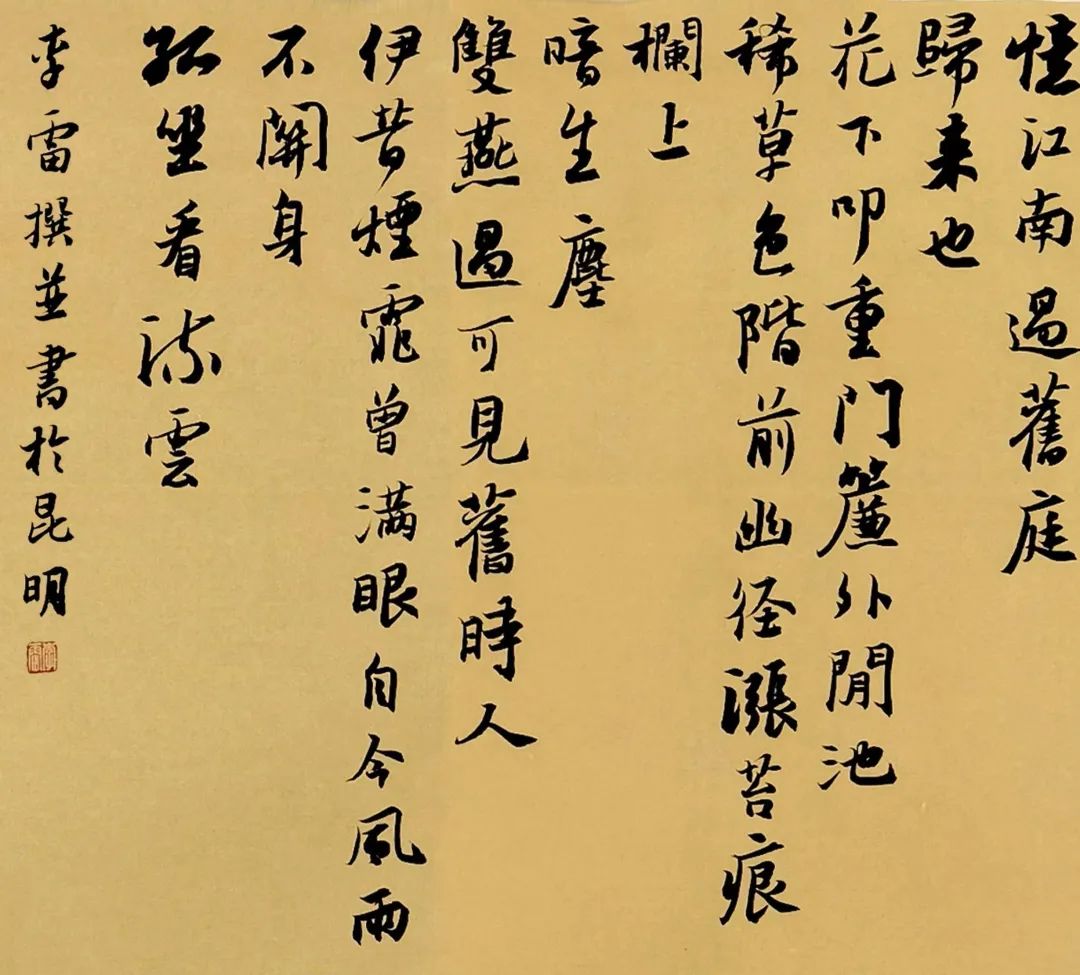 憶江南 過舊庭
歸来也
花下叩重門簾外閒池
稀草色階前幽径漲苔痕
欄上
暗生塵
雙燕過可見舊時人
伊昔煙霏曾满眼自今風雨
不關身
孤坐看流雲
李雷撰並書於昆明